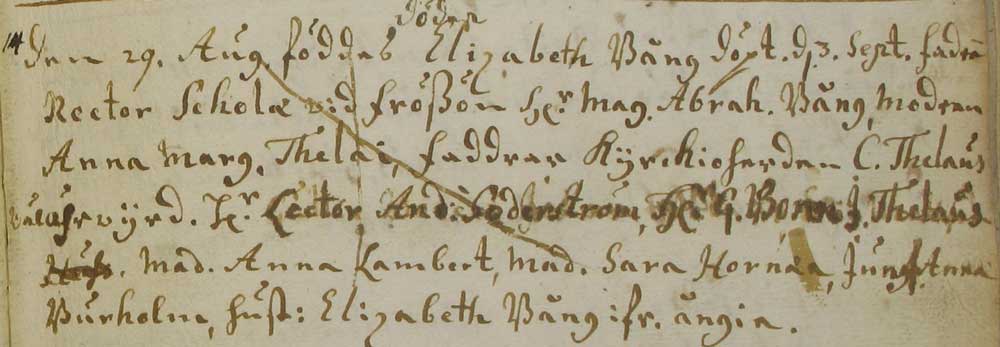 döder
14 den 29. Aug föddes Elizabeth Wäng döpt. d. 3. Sept. fadren
Rector Scholæ vid Frößön Hr. Mag. Abrah. Wäng, modren
Anna Marg. Thelai, faddrar Kyrckioherden C. Thelaus
Hr. Lector And: Söderström, Hr. G. J. Thelaus
Mad. Anna Lambert, Mad. Sara Hornæa, Jungf. Anna
Burholm, hust: Elizabeth Wäng ifr. ängia.